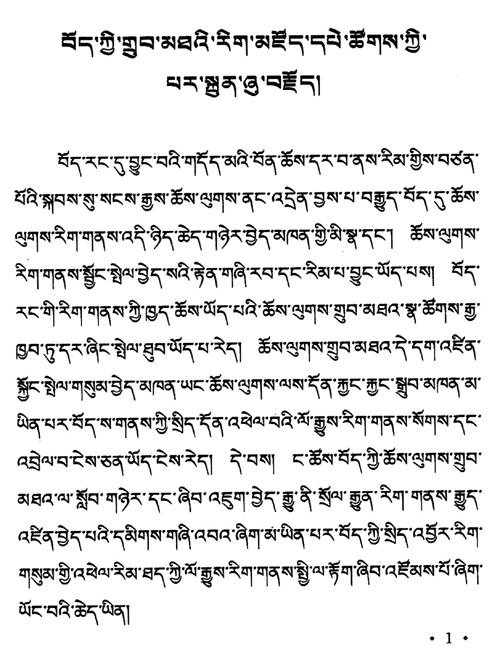 བོད་ཀྱི་གྲུབ་མཐའི་རིག་མཛོད་དཔེ་ཚོགས་ཀྱི་
པར་སྐྲུན་ཞུ་བརྗོད།
བོད་རང་དུ་བྱུང་བའི་གདོད་མའི་བོན་ཆོས་དར་བ་ནས་རིམ་གྱིས་བཙན་
པོའི་སྐབས་སུ་སངས་རྒྱས་ཆོས་ལུགས་ནང་འདྲེན་བྱས་པ་བརྒྱུད་བོད་དུ་ཆོས་
ལུགས་རིག་གནས་འདི་ཉིད་ཆེད་གཉེར་བྱེད་མཁན་གྱི་མི་སྣ་དང་། ཆོས་ལུགས་
རིག་གནས་སྦྱོང་སྤེལ་བྱེད་སའི་རྟེན་གཞི་རབ་དང་རིམ་པ་བྱུང་ཡོད་པས། བོད་
རང་གི་རིག་གནས་ཀྱི་ཁྱད་ཆོས་ཡོད་པའི་ཆོས་ལུགས་གྲུབ་མཐའ་སྣ་ཚོགས་རྒྱ་
ཁྱབ་ཏུ་དར་ཞིང་སྤེལ་ཐུབ་ཡོད་པ་རེད། ཆོས་ལུགས་གྲུབ་མཐའ་དེ་དག་འཛིན་
སྐྱོང་སྤེལ་གསུམ་བྱེད་མཁན་ཡང་ཆོས་ལུགས་ལས་དོན་རྐྱང་རྐྱང་སྒྲུབ་མཁན་མ་
ཡིན་པར་བོད་ས་གནས་ཀྱི་སྲིད་དོན་འཕེལ་བའི་ལོ་རྒྱུས་རིག་གནས་སོགས་དང་
འབྲེལ་བ་ངེས་ཅན་ཡོད་ངེས་རེད། དེ་བས། ང་ཚོས་བོད་ཀྱི་ཆོས་ལུགས་གྲུབ་
མཐའ་ལ་སློབ་གཉེར་དང་ཞིབ་འཇུག་བྱེད་རྒྱུ་ནི་སྲོལ་རྒྱུན་རིག་གནས་རྒྱུད་
འཛིན་བྱེད་པའི་དམིགས་གཞི་འབའ་ཞིག་མ་ཡིན་པར་བོད་ཀྱི་སྲིད་འབྱོར་རིག་
གསུམ་གྱི་འཕེལ་རིམ་ཐད་ཀྱི་ལོ་རྒྱུས་རིག་གནས་སྤྱི་ལ་རྟོག་ཞིབ་འཛོམས་པོ་ཞིག་
ཡོང་བའི་ཆེད་ཡིན།
• 1 •